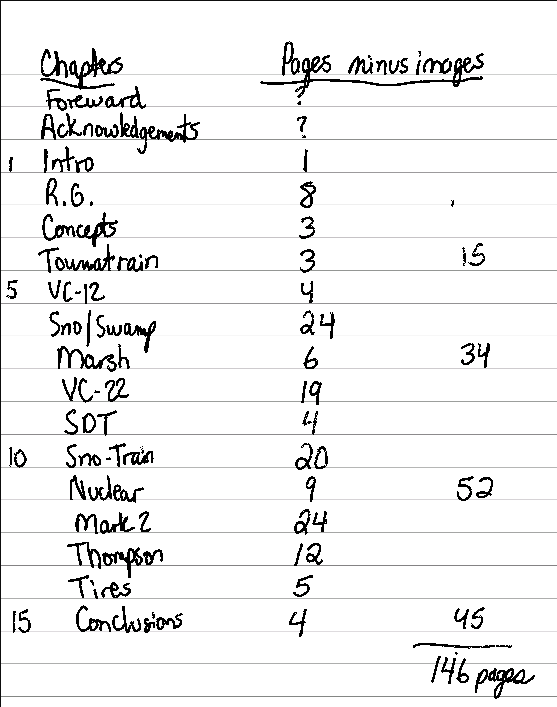 Chapters Pages minus images
Foreward ?
Acknowledgements ?
1 Intro 1
R.G. 8
Concepts 3
Tournatrain 3 15
5 VC-12 4
Sno/Swamp 24
Marsh 6 34
VC-22 19
SDT 4
10 Sno-Train 20
Nuclear 9 52
Mark 2 24
Thompson 12
Tires 5
15 Conclusions 4 45
146 pages